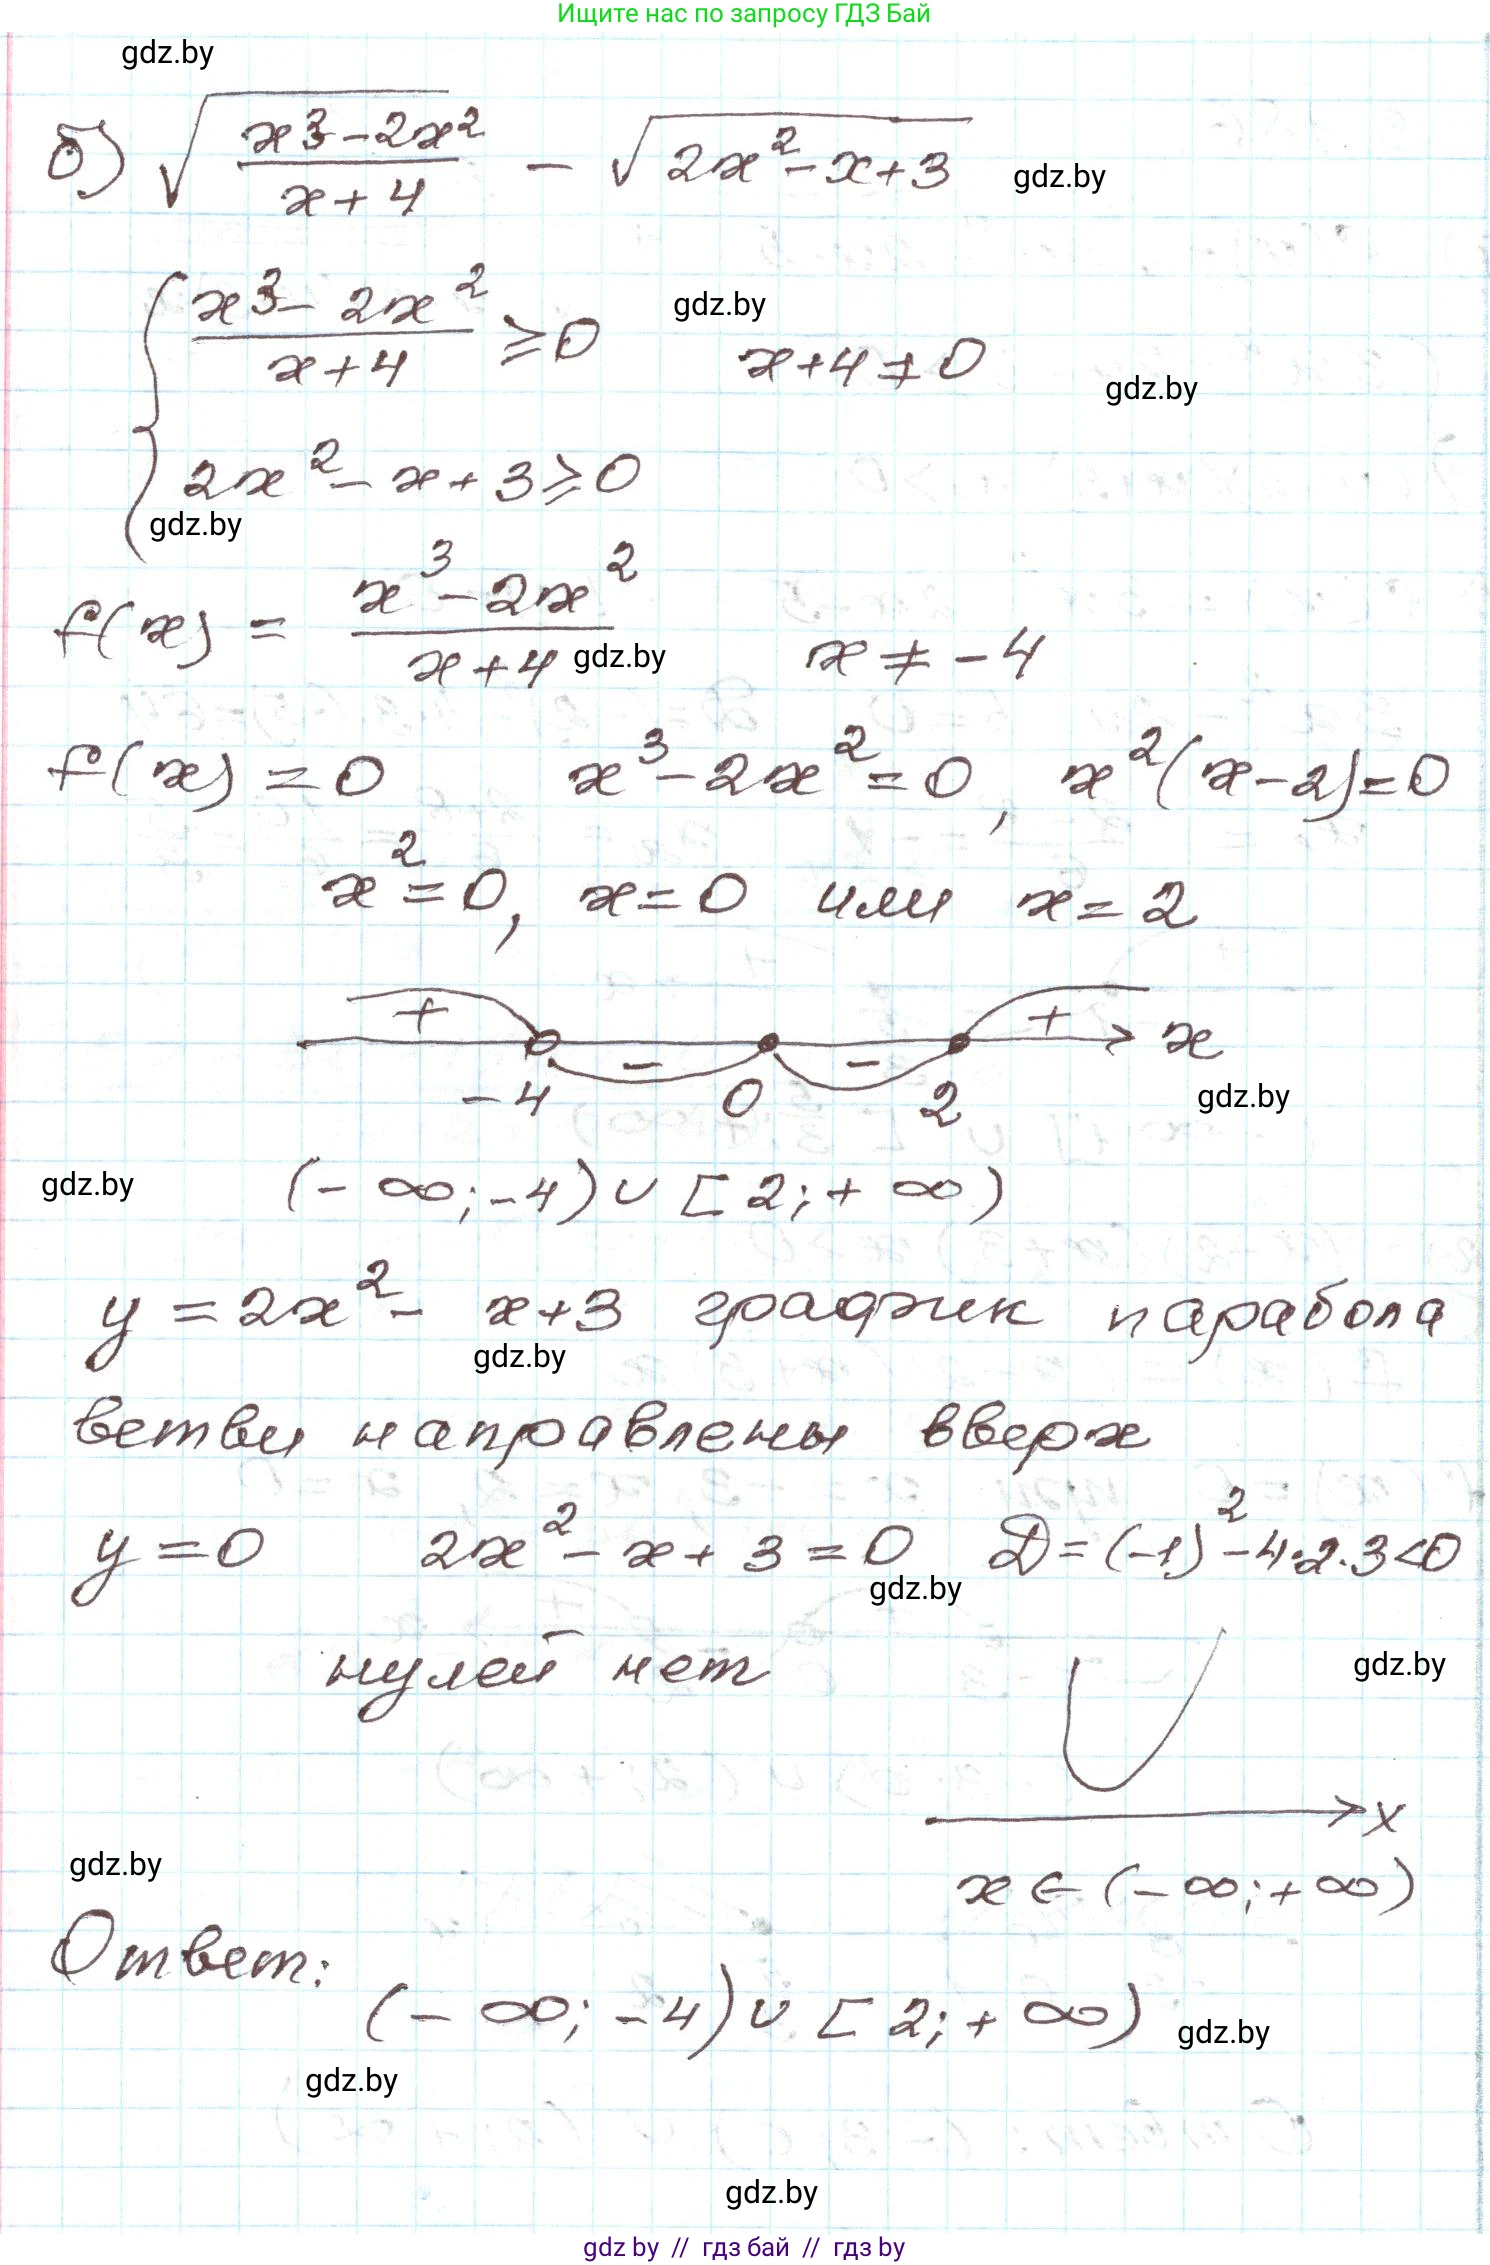 Ищите нас по запросу ГДЗ Бай
gdz.by
б) √((x³ - 2x²)/(x + 4)) - √(2x² - x + 3) gdz.by
{ (x³ - 2x²)/(x + 4) ≥ 0 gdz.by x + 4 ≠ 0 gdz.by
2x² - x + 3 ≥ 0
gdz.by
f(x) = (x³ - 2x²)/(x + 4) gdz.by x ≠ -4
f(x) = 0 x³ - 2x² = 0, x²(x - 2) = 0
x² = 0, x = 0 или x = 2
+ - - + x
-4 0 2 gdz.by
gdz.by (-∞; -4) ∪ [2; +∞)
y = 2x² - x + 3 график парабола
gdz.by
ветви направлены вверх
y = 0 2x² - x + 3 = 0 D = (-1)² - 4·2·3 < 0
gdz.by
нулей нет gdz.by
x
gdz.by x ∈ (-∞; +∞)
Ответ:
(-∞; -4) ∪ [2; +∞) gdz.by
gdz.by
gdz.by
gdz by // гдз бай // гдз by